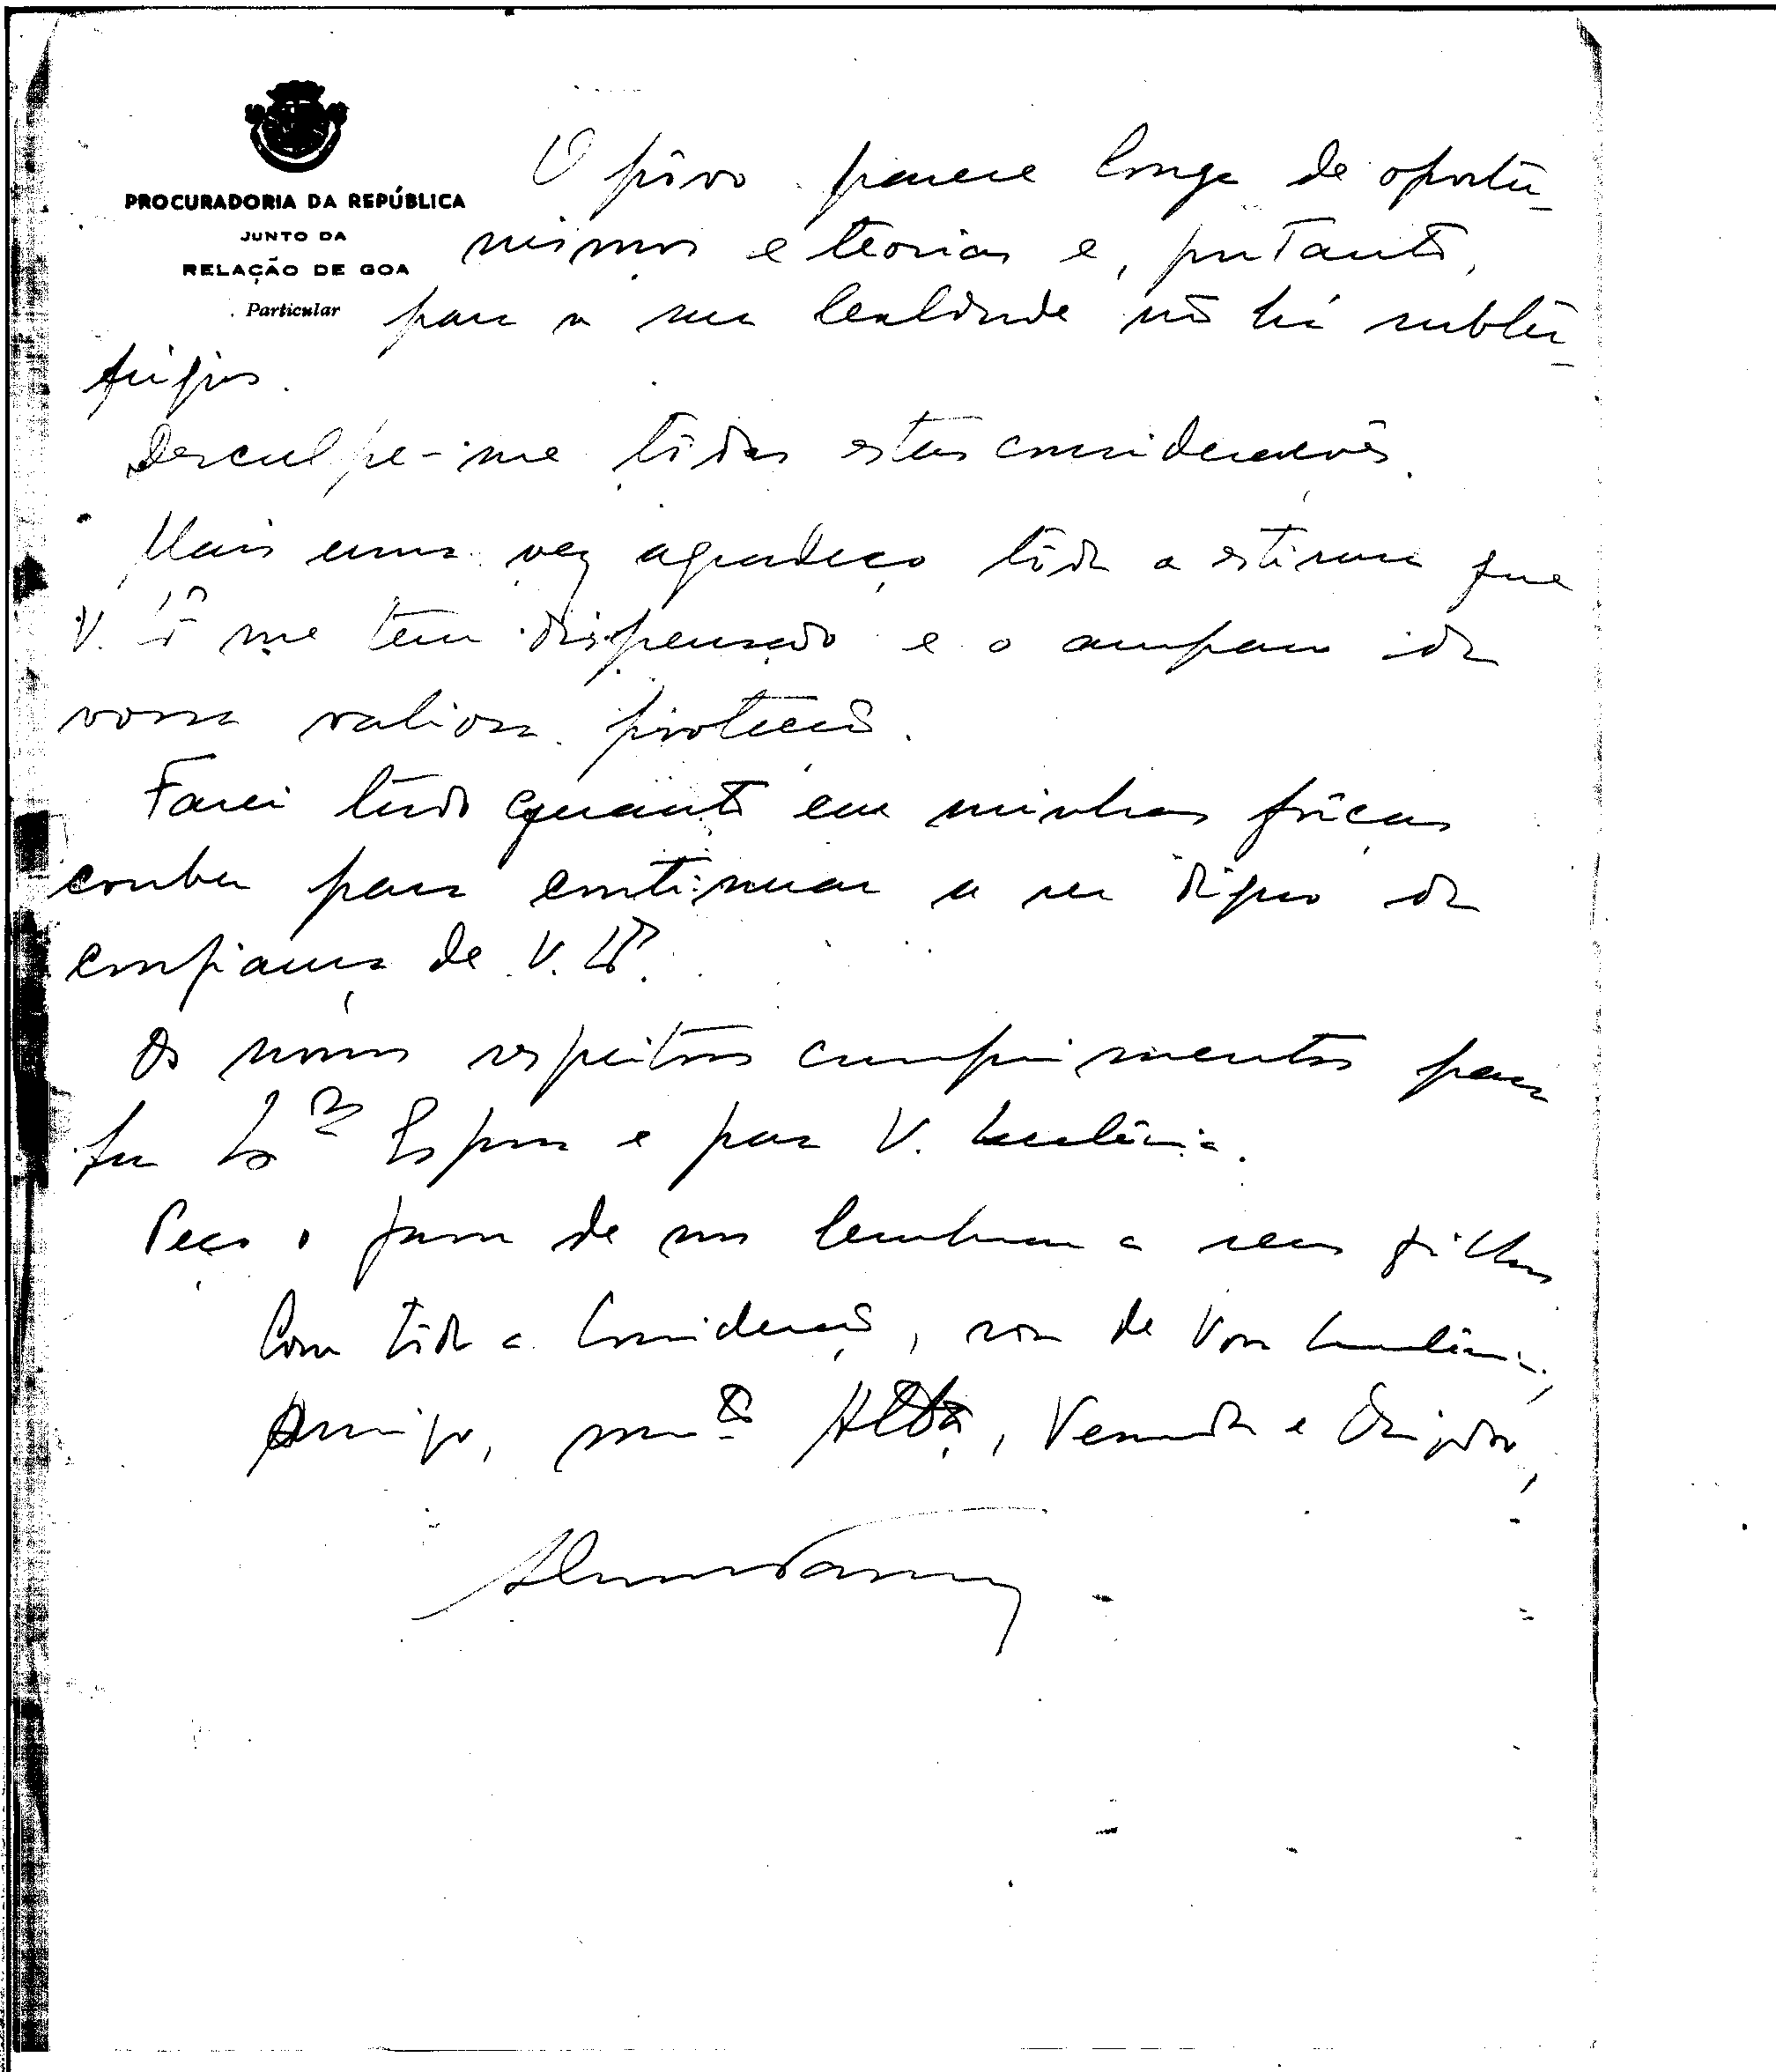 PROCURADORIA DA REPÚBLICA
JUNTO DA
RELAÇÃO DE GOA
Particular
O pôvo parece longe de oportu-
nismos e teorias e, portanto,
para a sua lealdade não há subter-
fúgios.
Desculpe-me tôdas estas considerações.
Mais uma vez agradeço tôda a estima que
V. Exª me tem dispensado e o amparo da
vossa valiosa protecção.
Farei tudo quanto em minhas fôrças
couber para continuar a ser digno da
confiança de V. Exª.
Os nossos respeitosos cumprimentos para
Exma Esposa e para V. Excelência.
Peço o favor de nos lembrar a seus filhos
Com tôda a Consideração, sou de Vossa Excelência,
Amigo, mto Atto, Venerador e Obrigado,